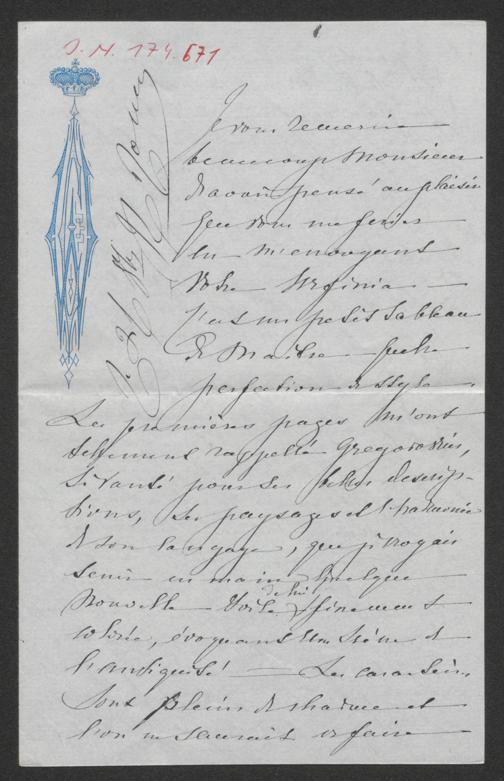 J.N. 174.671
Je vous remercie
beaucoup Monsieur
d'avoir pensé au plaisir
que vous me feriez
en m'envoyant
votre Virginia —
C'est un petit tableau
de Maître — quelle
perfection de style —
Les premières pages m'ont
tellement rappellé Gregorovius,
si vanté pour ses belles descrip-
tions, ses paysages et l'harmonie
de son langage, que je croyais
tenir en main quelque
Nouvelle — de lui finement
colorée, évoquant une scène de
l'antiquité — Les caractères
sont pleins de charme et
l'on ne saurait